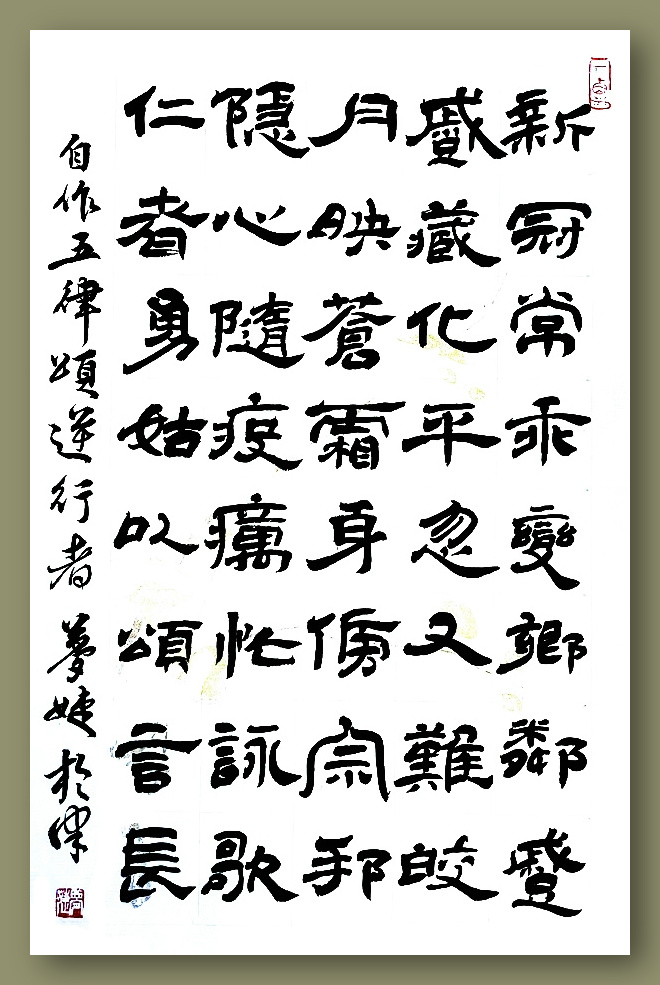 新冠常乖變鄉鄰蹙
蹙藏化平忽又難皎
月映蒼霜身傍宗邦
隱心隨疫癘忙詠歌
仁者勇姑以頌言長
自作五律頌逆行者 夢婕於津